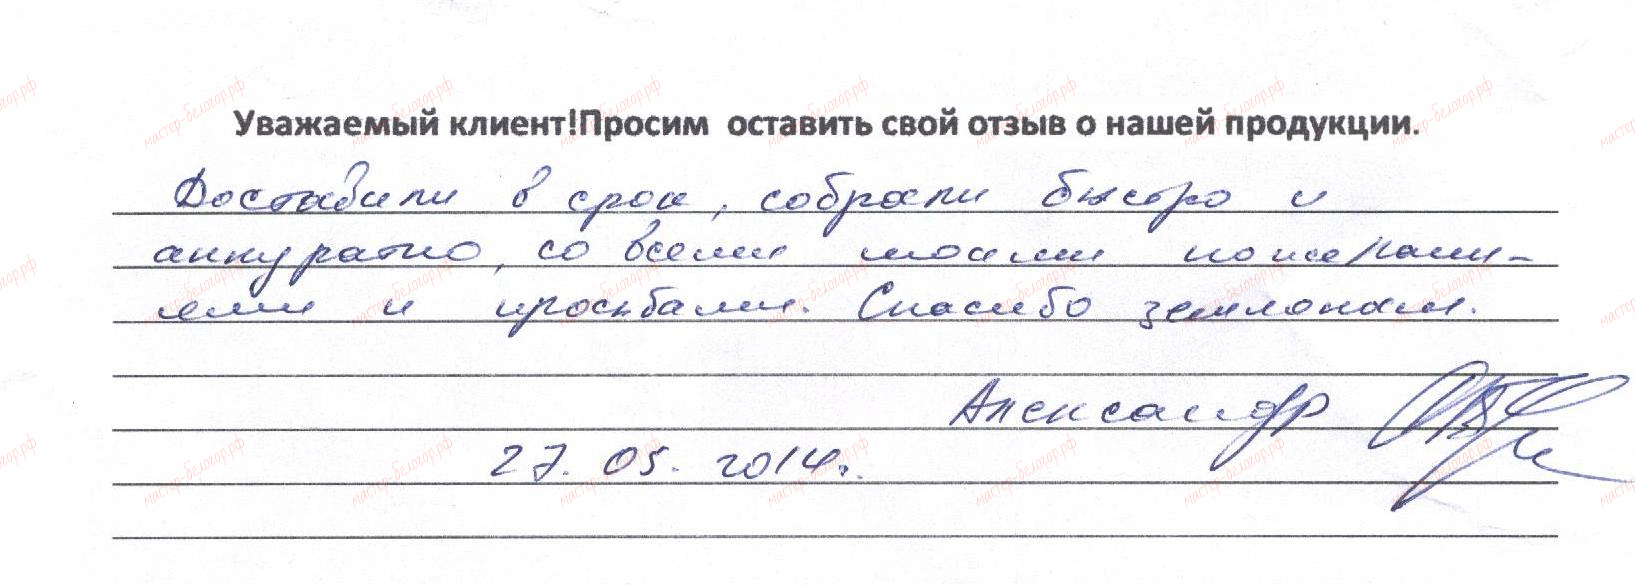 Уважаемый клиент!Просим оставить свой отзыв о нашей продукции.
Доставили в срок, собрали быстро и
аккуратно, со всеми моими пожелани-
ями и просьбами. Спасибо землякам.
Александр
27.05.2014г.
мастер-белогор.рф